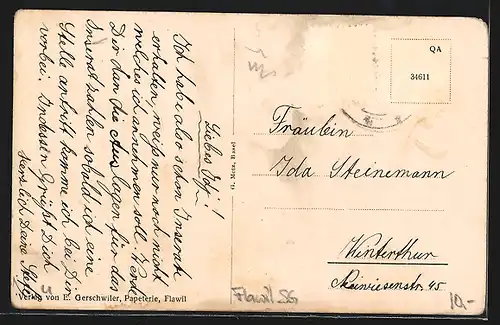 Liebes Idy!
Ich habe also schon Inserate
erhalten, weiss nur noch nicht
welches ich annehmen soll. Werde
Dir dan die Auslagen für das
Inserat zahlen sobald ich eine
Stelle antrift komme ich bei Dir
vorbei. Inderstn Grüßt Dich
herzlich Deine
Verlag von E. Gerschwiler, Papeterie, Flawil
G. Metz, Basel
QA
34611
Fräulein
Ida Steinemann
Winterthur
45
Flawil SG
10.-